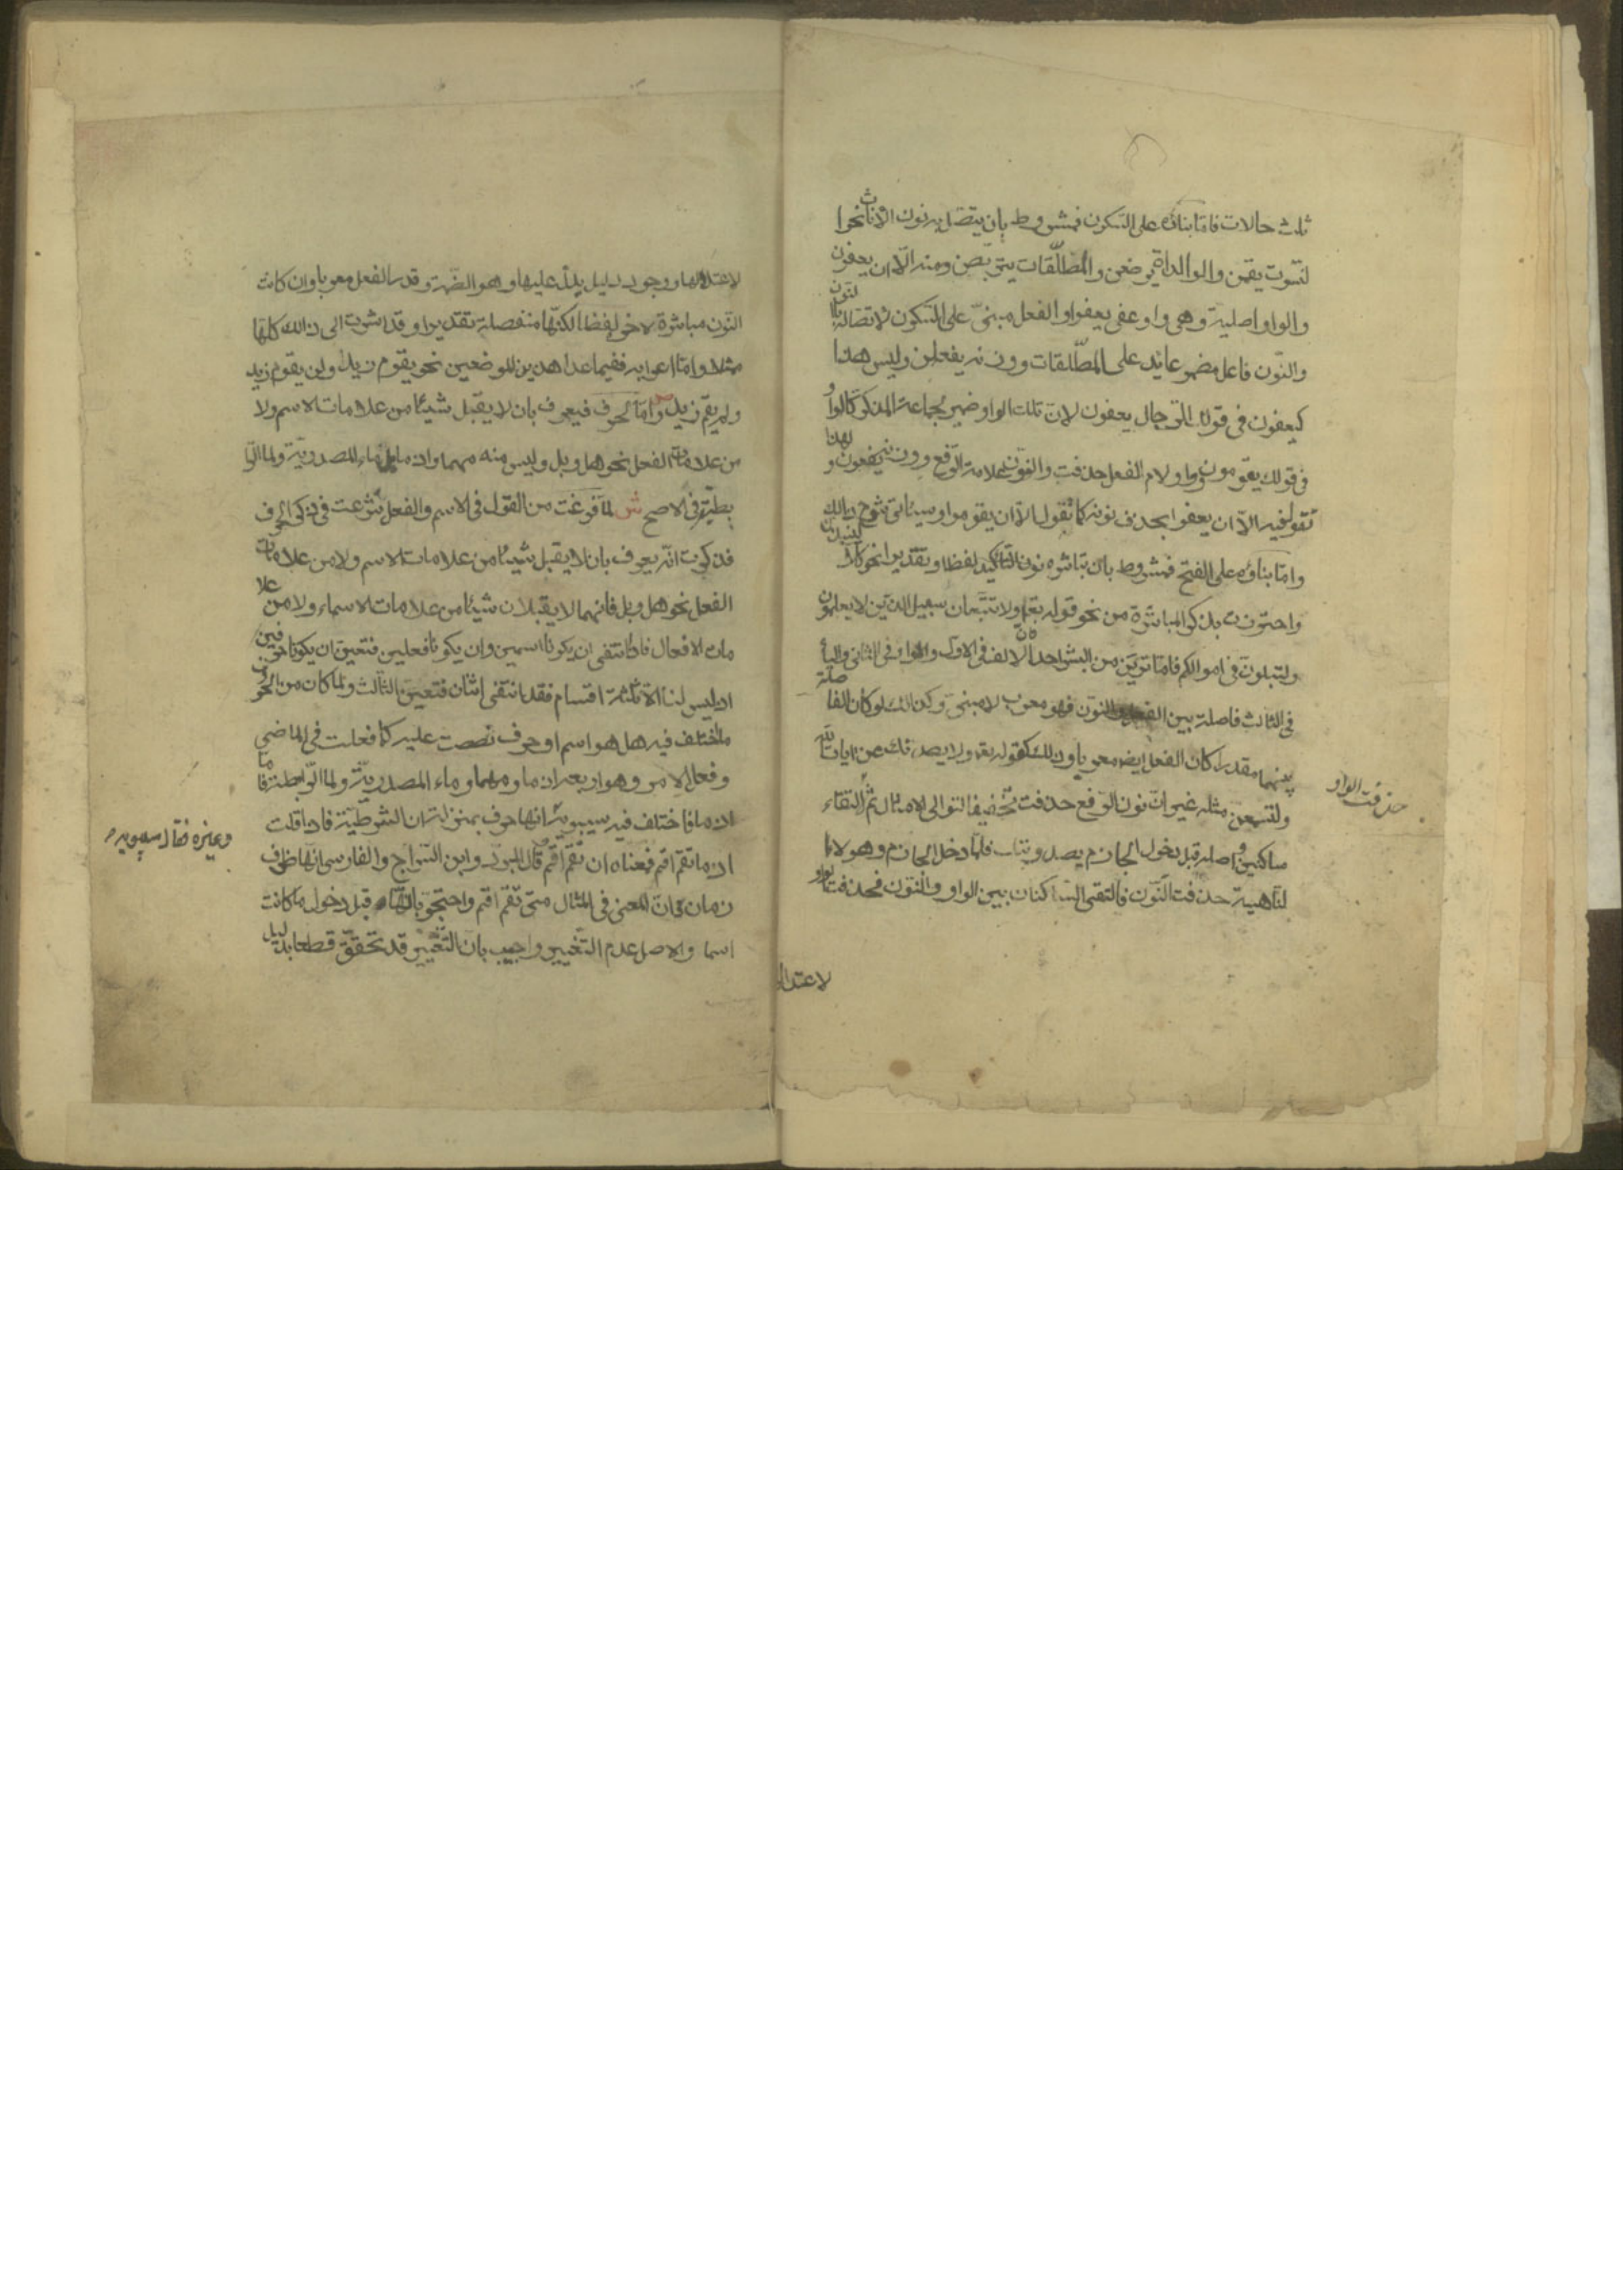 ثلث حالات فامّا بناؤه على السّكون فمشروط بان يتّصل به نون الاناث نحوا
لنّسوت يقمن والوالداة يرضعن والمطلّقات يتربّصن ومنه الّا ان يعفون
والواو اصلية وهى واو عفى يعفوا والفعل مبنىّ على السّكون لاتصاله بالنّون
والنّون فاعل مضمر عايد على المطّلقات ووزنه يفعلن وليس هذا
كيعفون فى قولك الرّجال يعفون لانّ تلك الواو ضمير لجماعة المذكر كالواو
فى قولك يقومون وما ولام الفعل حذفت والنّون علامة الرّفع ووزنه يفعون ولهذا
تقول فيه الّا ان يعفوا بحذف نونه كما تقول الّا ان يقوموا وسيئاتى شرح ذالك
وامّا بناؤه على الفتح فمشروط بان تباشره نون التّاكيد لفظا وتقديرا نحو كلّا لينبذنّ
واحترزت بذكر المباشرة من نحو قوله تعا ولا تتّبعان سبيل الذين لا يعلمون
ولتبلونّ فى اموالكم فامّا تريّن من البشر احدا فانّ الالف فى الاول والواو فى الثانى واليأ
فى الثالث فاصلة بين الفعل والنّون فهو معرب لا مبنىّ وكذالك لو كان الفا صلة
بينهما مقدرا كان الفعل ايضا معربا وذلك كقوله تعه ولا يصدنّك عن ايات اللّه
ولتسمعنّ مثله غير انّ نون الرّفع حذفت تخفيفا لتوالى الامثال ثمّ التقاء
ساكنين واصله قبل دخول الجازم يصدوننّك فلمّا دخل الجازم وهو لا
النّاهية حذفت النّون فالتقى السّاكنان بين الواو والنّون فحذفت الواو
حذفت الواو
لاعتدا
لاعتلالها ووجود دليل يدلّ عليها وهو الضّمة وقدر الفعل معربا وان كانت
النّون مباشرة لاخره لفظا لكنّها منفصلة تقديرا وقد اشرت الى ذالك كلها
مثلا وامّا اعرابه ففيما عدا هذين للوضعين نحو يقوم زيد ولن يقوم زيد
ولم يقم زيد ص وامّا الحرف فيعرف بان لا يقبل شيئا من علامات الاسم ولا
من علامات الفعل نحو هل وبل وليس منه مهما واذما بل ماء المصدريّة ولما الرّا
بطة فى الاصح ش لمّا فرغت من القول فى الاسم والفعل شرعت فى ذكر الحرف
فذكرت انّه يعرف بان لا يقبل شيئا من علامات الاسم ولا من علامات
الفعل نحو هل وبل فانهما لا يقبلان شيئا من علامات الاسماء ولا من علا
مات الافعال فانتفى ان يكونا اسمين وان يكونا فعلين فتعيّن ان يكونا حرفين
اذ ليس لنا الّا ثلثة اقسام فقد انتفى اثنان فتعيّن الثّالث ولمّا كان من الحرف
ما اختلف فيه هل هو اسم او حرف نصصت عليه كما فعلت فى الماضى
وفعل الامر وهو اربعه اذما ومهما وماء المصدريّة ولما الرّابطة فامّا
اذما فاختلف فيه سيبويه انها حرف بمنزلة ان الشّرطيّة فاذا قلت
وغيره فقال سيبويه
اذ ما تقم اقم فمعناه ان تقم اقم وقال المبرّد وابن السّراج والفارسى انها ظرف
زمان وانّ المعنى فى المثال متى تقم اقم واحتجّو بانّها قبل دخول ما كانت
اسما والاصل عدم التّغيير واجيب بانّ التّغيير قد تحقّق قطعا بدليل